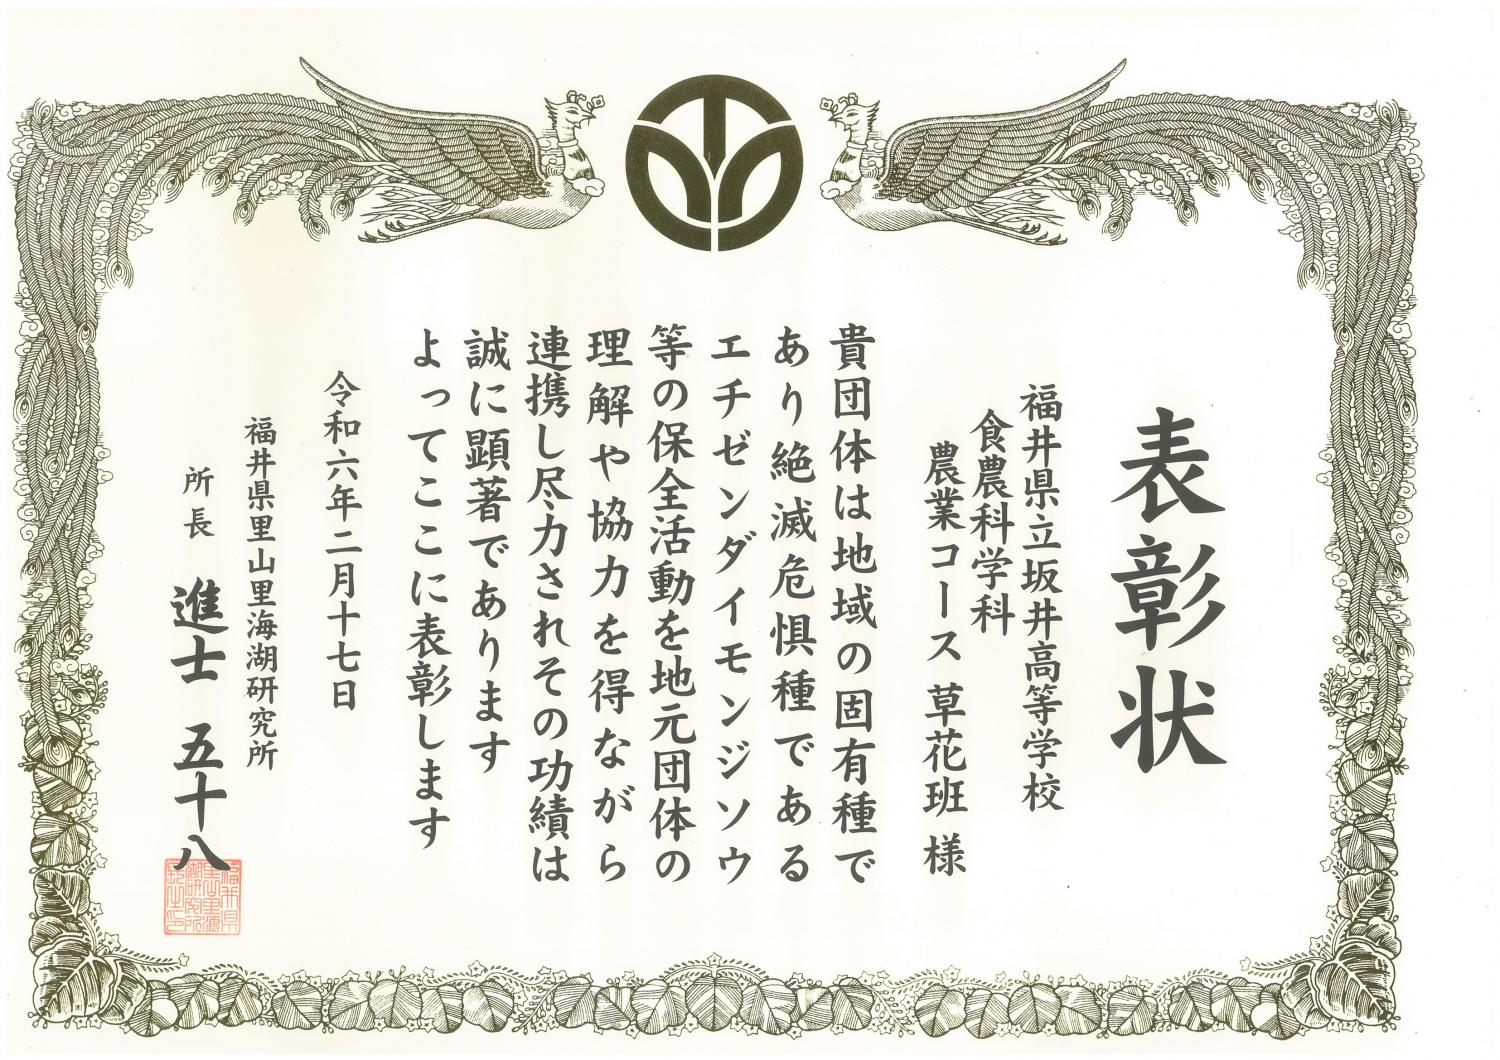 表彰状
福井県立坂井高等学校
食農科学科
農業コース 草花班 様
貴団体は地域の固有種で
あり絶滅危惧種である
エチゼンダイモンジソウ
等の保全活動を地元団体の
理解や協力を得ながら
連携し尽力されその功績は
誠に顕著であります
よってここに表彰します
令和六年二月十七日
福井県里山里海湖研究所
所長 進士 五十八